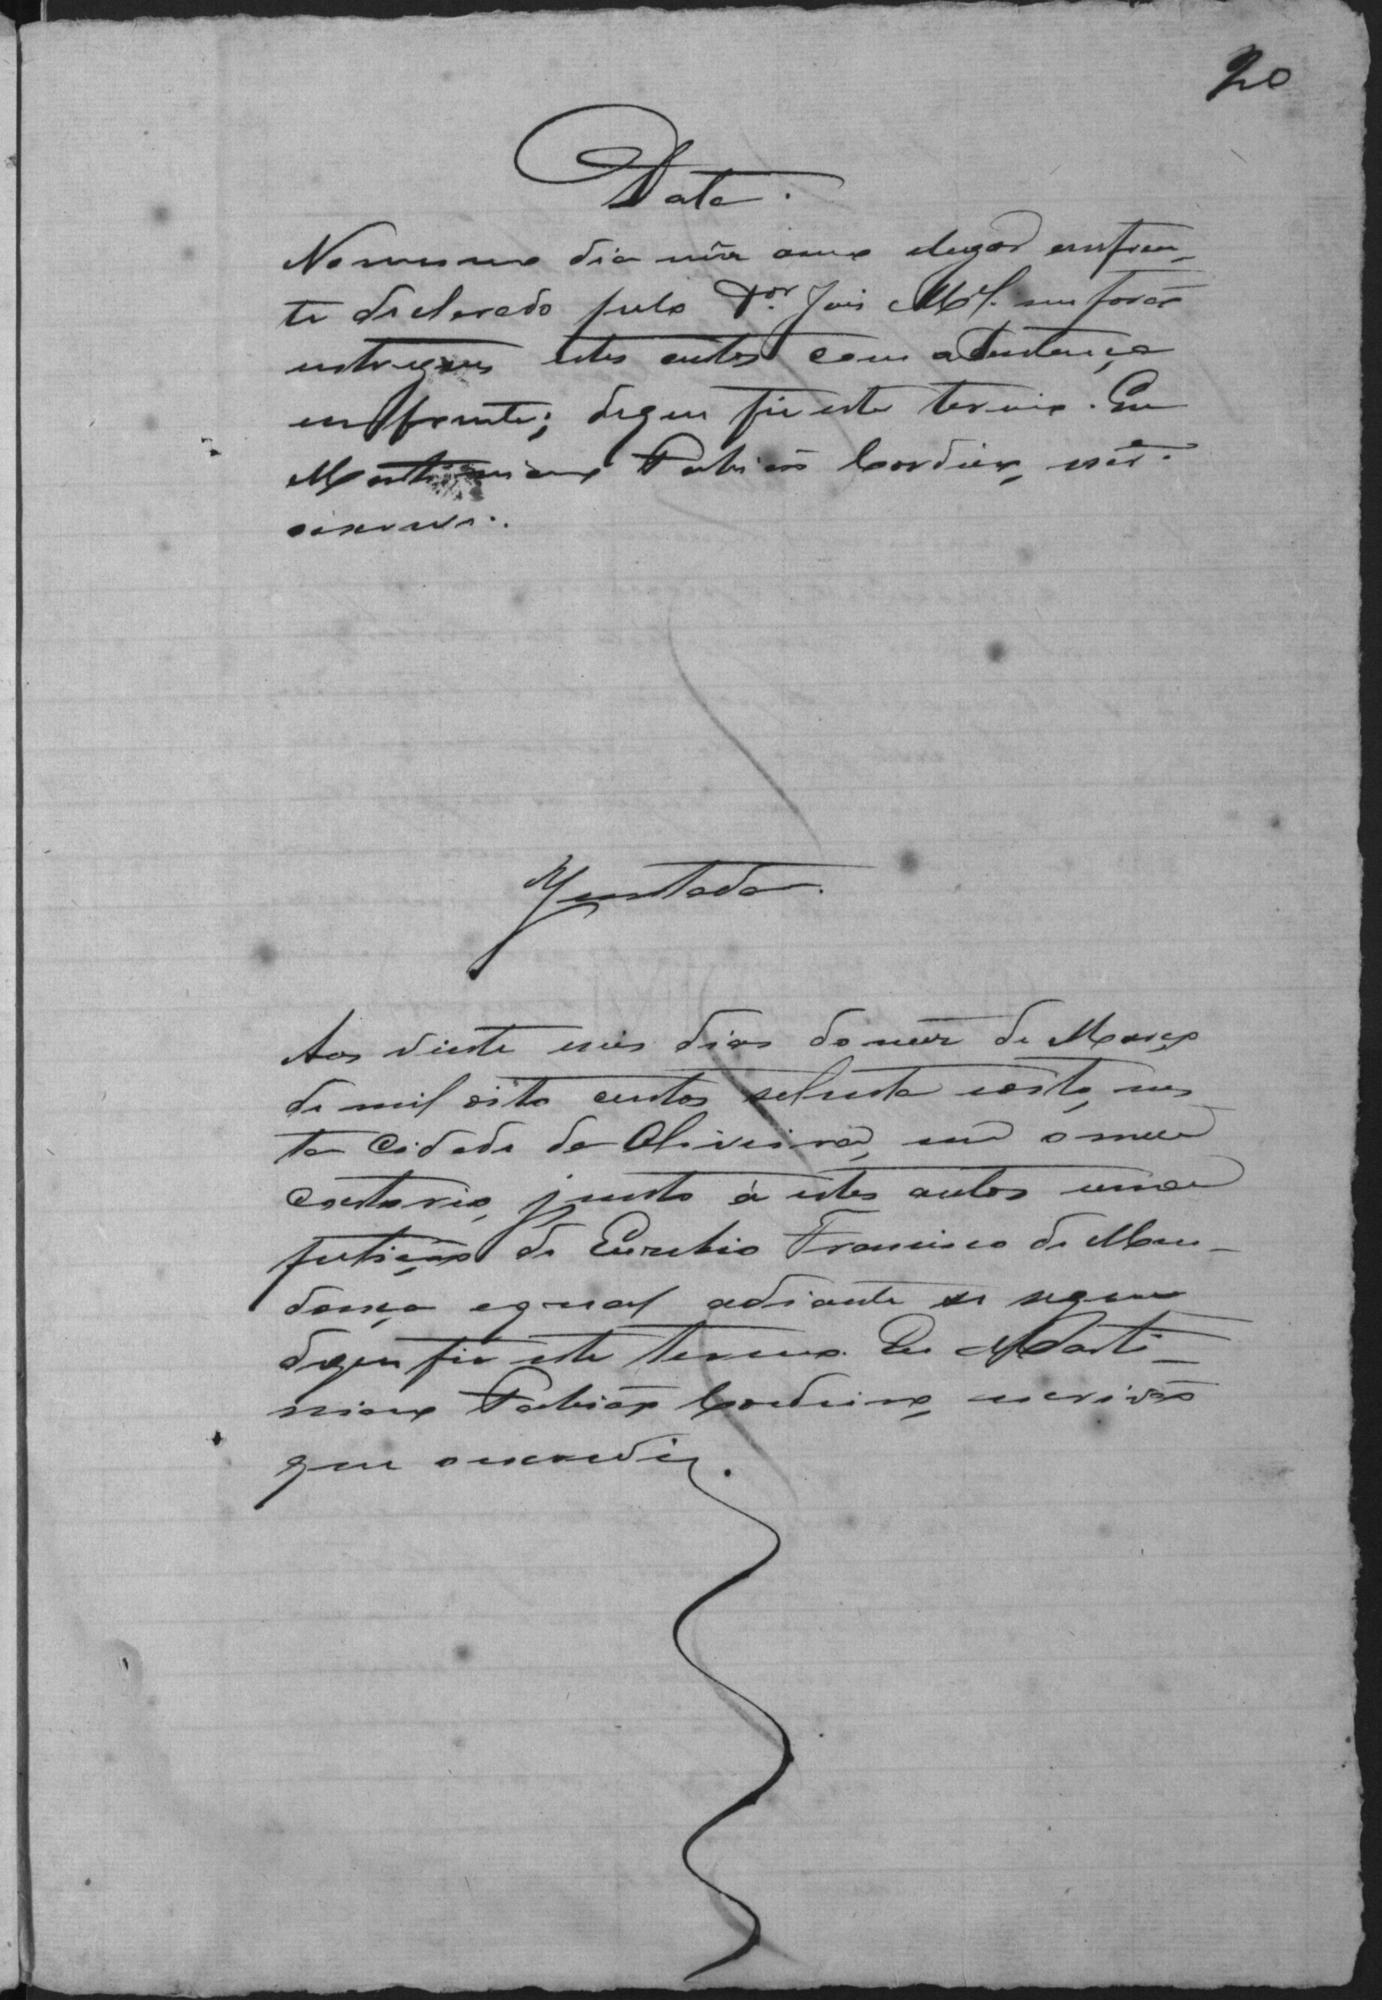 20
Data.
No mesmo dia mês anno elugar emfren-
te declarado pelo Dor. Juis Ml. me forão
entregues estes autos com a Sentença
em frente; deque fis este termo. Eu
Martiniano Fabião Cordeiro, esc.
oescrevi.
Juntada.
Aos vinte seis dias do mês de Março
de mil oito centos setenta eoito, nes
ta Cidade de Oliveira, em o meu
Cartorio, junto á estes autos uma
petição de Euzebio Francisco de Men-
donça equal adiante se segue
dque fis este termo. Eu Marti-
niano Fabião Cordeiro, escrivão
que oescrevi.